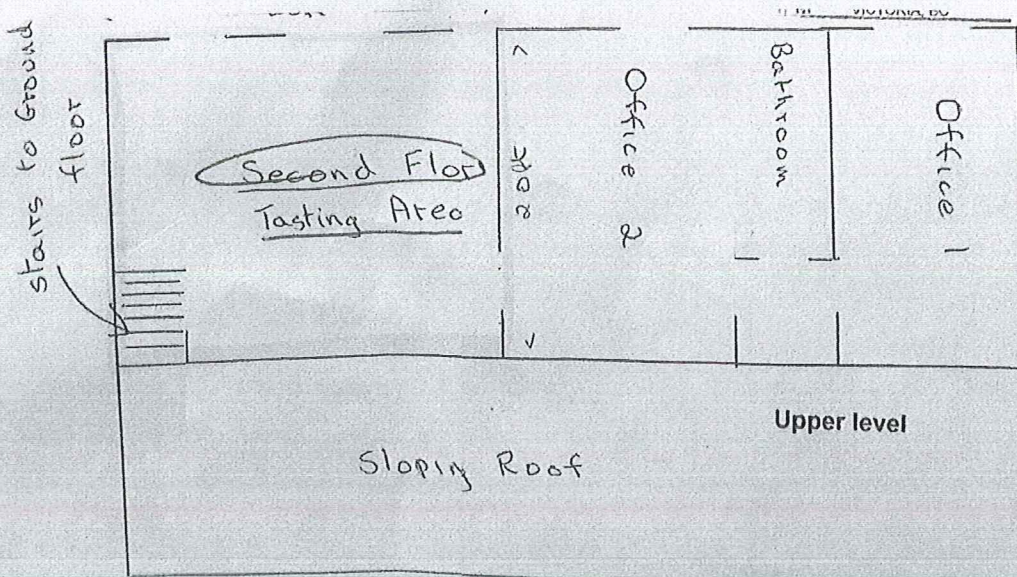 VICTORIA, BC
Stairs to Ground
floor
Second Flor
Tasting Area
Office 2
Bathroom
Office 1
Upper level
Sloping Roof